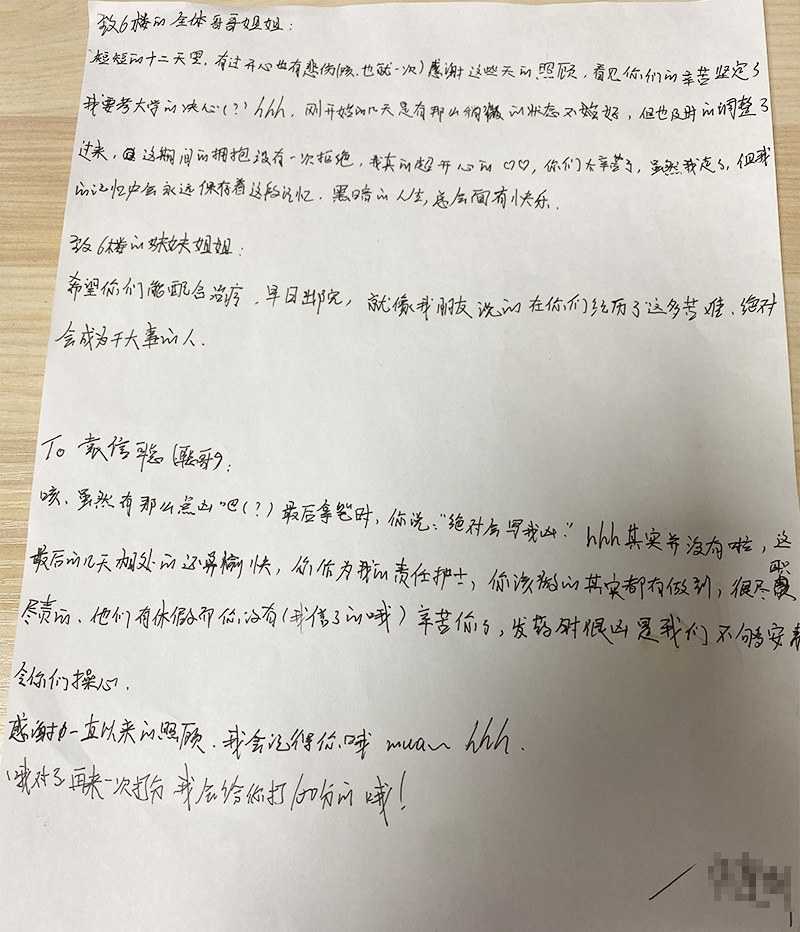 致6楼的全体哥哥姐姐：
短短的十二天里，有过开心也有悲伤(咳、也就一次)感谢这些天的照顾，看见你们的辛苦坚定了
我要考大学的决心(？) hhh，刚开始的几天是有那么稍微的状态不够好，但也及时的调整了
过来，这期间的拥抱没有一次拒绝，我真的超开心的♡♡，你们太辛苦了，虽然我走了，但我
的记忆中会永远保存着这段记忆．黑暗的人生，总会面有快乐．
致6楼的妹妹姐姐：
希望你们能配合治疗，早日出院，就像我朋友说的在你们经历了这多苦难、绝对
会成为干大事的人．
To 袁信聪(聪哥)：
咳、虽然有那么点凶吧(？)最后拿笔时，你说："绝对会写我凶" hhh其实并没有啦，这
最后的几天相处的还算愉快，你作为我的责任护士，你该做的其实都有做到，很尽职
尽责的、他们有休假而你没有(我信了的哦)辛苦你了，发药时很凶是我们不够安
令你们操心．
感谢一直以来的照顾．我会记得你哦 mua~ hhh．
哦对了再来一次打分 我会给你打100分的哦！